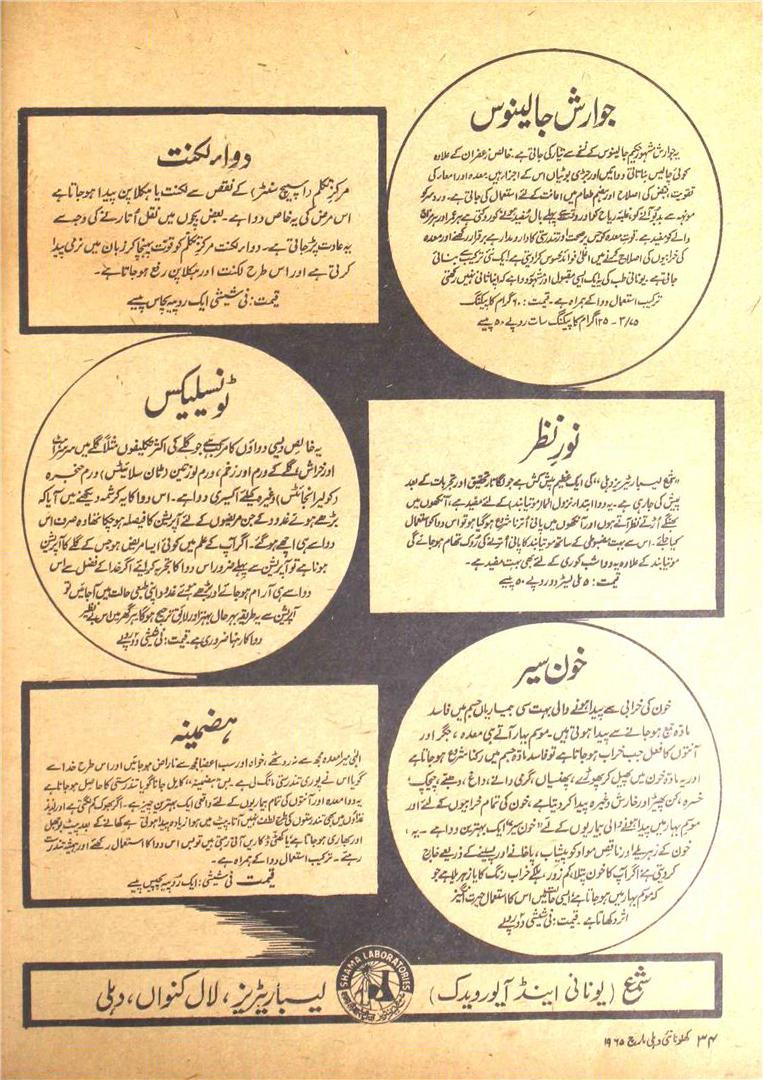 جوارش جالینوس
یہ جوارش مشہور حکیم جالینوس کے نسخے سے تیار کی جاتی ہے۔ خالص زعفران کے علاوہ
کوئی چالیس نباتاتی دوائیں اور جڑی بوٹیاں اس کے اجزا ہیں۔ معدہ اور امعار کی
تقویت، قبض کی اصلاح اور ہضم طعام میں اعانت کے لئے استعمال کی جاتی ہے۔ درد سر کو
کی خرابیوں کی اصلاح کرنے میں اعلیٰ فوائد محسوس کرا دیتی ہے۔ ایک نئی ترکیب سے بنائی
جاتی ہے۔ یونانی طب کی یہ ایک ایسی مقبول اور مشہور دوا ہے کہ اپنا ثانی نہیں رکھتی
ترکیب استعمال دوا کے ہمراہ ہے۔ قیمت: ۶۰ گرام کا پیکنگ
۳/۷۵ - ۱۲۵ گرام کا پیکنگ سات روپے ۵۰ پیسے
دواء لکنت
مرکزِ تکلم (اسپیچ سنٹر) کے نقص سے لکنت یا ہکلا پن پیدا ہو جاتا ہے
اس مرض کی یہ خاص دوا ہے۔ بعض بچوں میں نقل اُتارنے کی وجہ سے
یہ عادت پڑ جاتی ہے۔ دواء لکنت مرکزِ تکلم کو قوت پہنچا کر زبان میں نرمی پیدا
کرتی ہے اور اس طرح لکنت اور ہکلا پن رفع ہو جاتا ہے۔
قیمت: فی شیشی ایک روپیہ پچاس پیسے
ٹونسیلیکس
یہ خالص دیسی دواؤں کا مرکب ہے جو گلے کی اکثر تکلیفوں مثلاً گلے میں سرسراہٹ
اور خراش، گلے کے ورم اور زخم، ورم لوزتین (ٹان سلائیٹس) ورم حنجرہ
(کولیرانجائٹس) وغیرہ کیلئے اکسیری دوا ہے۔ اس دوا کا یہ کرشمہ دیکھنے میں آیا کہ
بڑھے ہوئے غدود کے جن مریضوں کے لئے آپریشن کا فیصلہ ہو چکا تھا وہ صرف اس
دوا سے ہی اچھے ہو گئے۔ اگر آپ کے علم میں کوئی ایسا مریض ہو جس کے گلے کا آپریشن
ہونا ہے تو آپریشن سے پہلے ضرور اس دوا کا تجربہ کرائیے اگر خدا کے فضل سے اس
دوا سے ہی آرام ہو جائے اور بڑھے ہوئے غدود اپنی طبعی حالت میں آجائیں تو
آپریشن سے یہ طریقہ بہرحال بہتر اور لائق ترجیح ہوگا۔ ہر گھر میں اس بے نظیر
دوا کا رہنا ضروری ہے۔ قیمت: فی شیشی دو روپے
نورِ نظر
”شمع لیبارٹریز دہلی“ کی ایک عظیم پیش کش ہے جو لگاتار تحقیق اور تجربات کے بعد
پیش کی جا رہی ہے۔ یہ دوا ابتداء نزول الماء (موتیا بند) کے لئے مفید ہے۔ آنکھوں میں
بھنگے اُڑتے نظر آتے ہوں اور آنکھوں میں پانی اُترنا شروع ہو گیا ہو تو اس دوا کو استعمال
کیا جائے۔ اس سے بہت مضبوطی کے ساتھ موتیا بند کا پانی اُترنے کی روک تھام ہو جائے گی
موتیا بند کے علاوہ یہ دوا شب کوری کے لئے بھی بہت مفید ہے۔
قیمت: ۵ ملی لیٹر دو روپے ۵۰ پیسے
خون سیر
خون کی خرابی سے پیدا ہونے والی بہت سی بیماریاں جسم میں فاسد
مادّہ جمع ہو جانے سے پیدا ہوتی ہیں۔ موسم بہار آتے ہی معدہ، جگر اور
آنتوں کا فعل جب خراب ہو جاتا ہے تو فاسد مادّہ جسم میں رُکنا شروع ہو جاتا ہے
اور یہ مادّہ خون میں پھیل کر پھوڑے، پھنسیاں، گرمی دانے، داغ، دھبّے، چیچک،
خسرہ، کن پھیڑ اور خارش وغیرہ پیدا کر دیتا ہے، خون کی تمام خرابیوں کے لئے اور
موسم بہار میں پیدا ہونے والی بیماریوں کے لئے ”خون سیر“ ایک بہترین دوا ہے۔ یہ
خون کے زہریلے اور ناقص مواد کو پیشاب، پاخانے اور پسینے کے ذریعے خارج
کر دیتی ہے، اگر آپ کا خون پتلا، کمزور، ہلکے خراب رنگ کا یا زہریلا ہے جو
کہ موسم بہار میں ہو جاتا ہے، ایسی حالت میں اس کا استعمال حیرت انگیز
اثر دکھاتا ہے۔ قیمت: فی شیشی دو روپے
ہضمینہ
الٰہی میرا معدہ مجھ سے نہ روٹھے، خواہ اور سب اعضا مجھ سے ناراض ہو جائیں اور اس طرح خدا سے
گویا اس نے پوری تندرستی مانگ لی ہے۔ بس ”ہضمینہ“ کا مل جانا گویا تندرستی کا حاصل ہو جانا ہے
یہ دوا معدہ اور آنتوں کی تمام بیماریوں کے لئے واقعی ایک بہترین چیز ہے۔ اگر بھوک کم لگتی ہے اور لذیذ
غذاؤں میں بھی تندرستوں کی طرح لطف نہیں آتا، پیٹ میں ہوا زیادہ پیدا ہوتی ہے کھانے کے بعد پیٹ بوجھل
اور بھاری ہو جاتا ہے یا کھٹی ڈکاریں آتی رہتی ہیں تو بس اس دوا کا استعمال رکھئے اور ہمیشہ تندرست
رہئے۔ ترکیب استعمال دوا کے ہمراہ ہے۔
قیمت فی شیشی: ایک روپیہ پچیس پیسے
شمع (یونانی اینڈ آیورویدک) لیبارٹریز، لال کنواں، دہلی
SHAMA LABORATORIES
۳۴ کھلونا نئی دہلی مارچ ۱۹۶۵